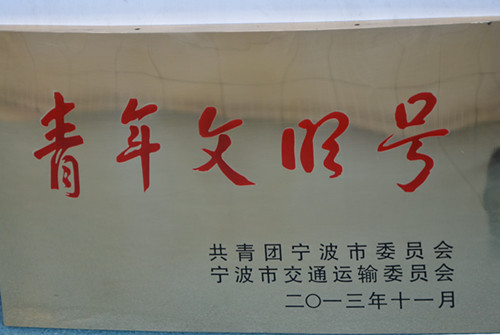 青年文明号
共青团宁波市委员会
宁波市交通运输委员会
二〇一三年十一月